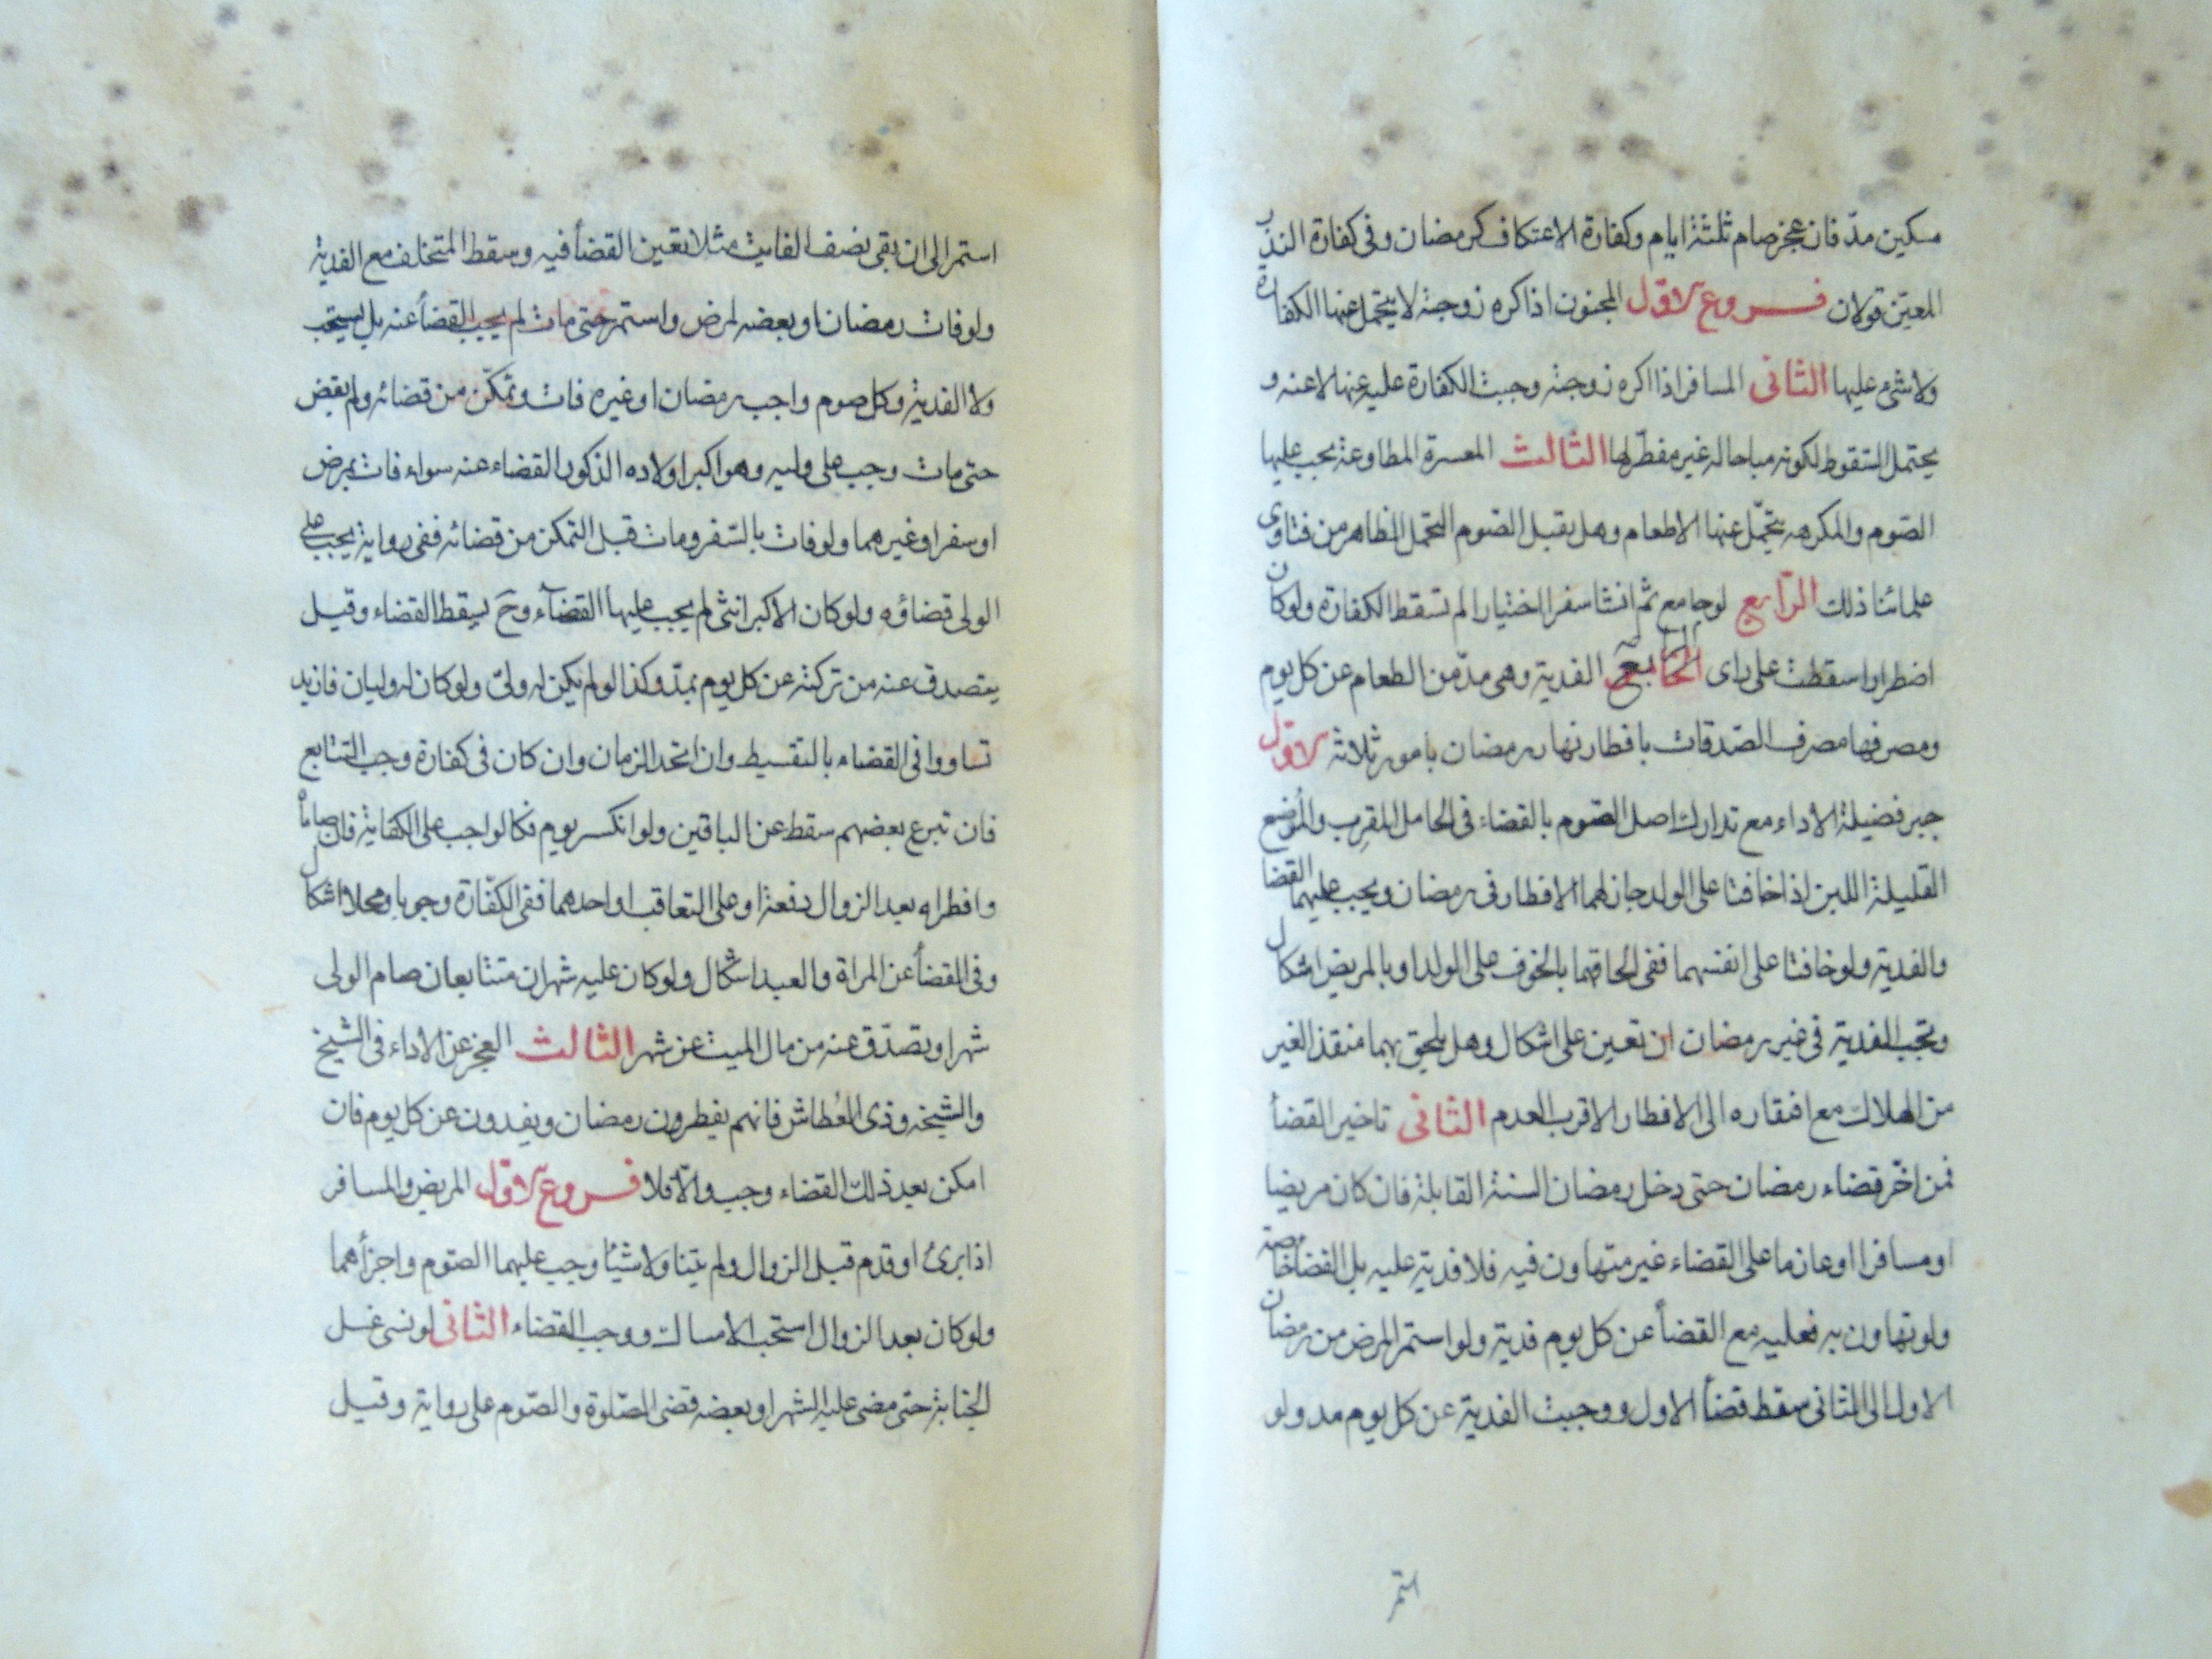 مسكين مدّ فان عجز صام ثلثة ايام وكفارة الاعتكاف كرمضان وفى كفارة النذر
المعيّن قولان فروع الاوّل المجنون اذا اكره زوجته لا يتحمل عنها الكفارة
ولا شئ عليها الثانى المسافر اذا اكره زوجته وجبت الكفارة عليه عنها لا عنه و
يحتمل السّقوط لكونه مباحا له غير مفطّر لها الثالث المعسرة المطاوعة يجب عليها
الصّوم والمكرهه يتحمّل عنها الاطعام وهل يقبل الصّوم التحمل الظاهر من فتاوى
علمائنا ذلك الرّابع لو جامع ثم انشا سفرا اختيارا لم تسقط الكفارة ولو كان
اضطرارا سقطت على راى الفدية وهى مدّ من الطعام عن كل يوم
ومصرفها مصرف الصّدقات بافطار نهار رمضان بامور ثلاثة الاوّل
جبر فضيلة الاداء مع تدارك اصل الصّوم بالقضاء فى الحامل المقرب والمُرضع
القليلة اللبن اذا خافتا على الولد جاز لهما الافطار فى رمضان ويجب عليهما القضا
والفدية ولو خافتا على انفسهما ففى الحاقهما بالخوف على الولد او بالمريض اشكال
وتجب الفدية فى غير رمضان ان تعين على اشكال وهل يلحق بهما منقذ الغير
من الهلاك مع افتقاره الى الافطار الاقرب العدم الثانى تاخير القضأ
فمن اخّر قضاء رمضان حتى دخل رمضان السنة القابلة فان كان مريضا
او مسافرا او عازما على القضاء غير متهاون فيه فلا فدية عليه بل القضأ خاصة
ولو تهاون به فعليه مع القضأ عن كل يوم فدية ولو استمر المرض من رمضان
الاول الى الثانى سقط قضأ الاول ووجبت الفدية عن كل يوم مد ولو
استمر
استمر الى ان بقى نصف الفايت مثلا تعين القضأ فيه وسقط المتخلف مع الفدية
ولو فات رمضان او بعضه لمرض واستمر حتى مات لم يجب القضأ عنه بل يستحب
ولا الفدية وكل صوم واجب رمضان او غيره فات وتمكّن من قضائه ولم يقض
حتى مات وجب على وليه وهو اكبر اولاده الذكور القضاء عنه سواء فات بمرض
او سفر او غيرهما ولو فات بالسّفر ومات قبل التمكن من قضائه ففى رواية يجب على
الولى قضاؤه ولو كان الاكبر انثى لم يجب عليها القضآء وح يسقط القضاء وقيل
يتصدق عنه من تركته عن كل يوم بمدّ وكذا لو لم يكن له ولىّ ولو كان له وليان فازيد
تساووا فى القضاء بالتقسيط وان اتحد الزمان وان كان فى كفارة وجب التتابع
فان تبرع بعضهم سقط عن الباقين ولو انكسر يوم فكالواجب على الكفاية فان صاماه
وافطرا بعد الزوال دفعة او على التعاقب او احدهما ففى الكفّارة وجوبا ومحلا اشكال
وفى القضأ عن المراة والعبد اشكال ولو كان عليه شهران متتابعان صام الولى
شهرا وتصدّق عنه من مال الميت عن شهر الثالث العجز عن الاداء فى الشيخ
والشيخة وذى العُطاش فانهم يفطرون رمضان ويفدون عن كل يوم فان
امكن بعد ذلك القضاء وجب والّا فلا فروع الاوّل المريض والمسافر
اذا برئ او قدم قبل الزوال ولم يتناولا شيئا وجب عليهما الصّوم واجزأهما
ولو كان بعد الزوال استحب الامساك ووجب القضاء الثانى لو نسى غسل
الجنابة حتى مضى عليه الشهر او بعضه قضى الصّلوة والصّوم على رواية وقيل